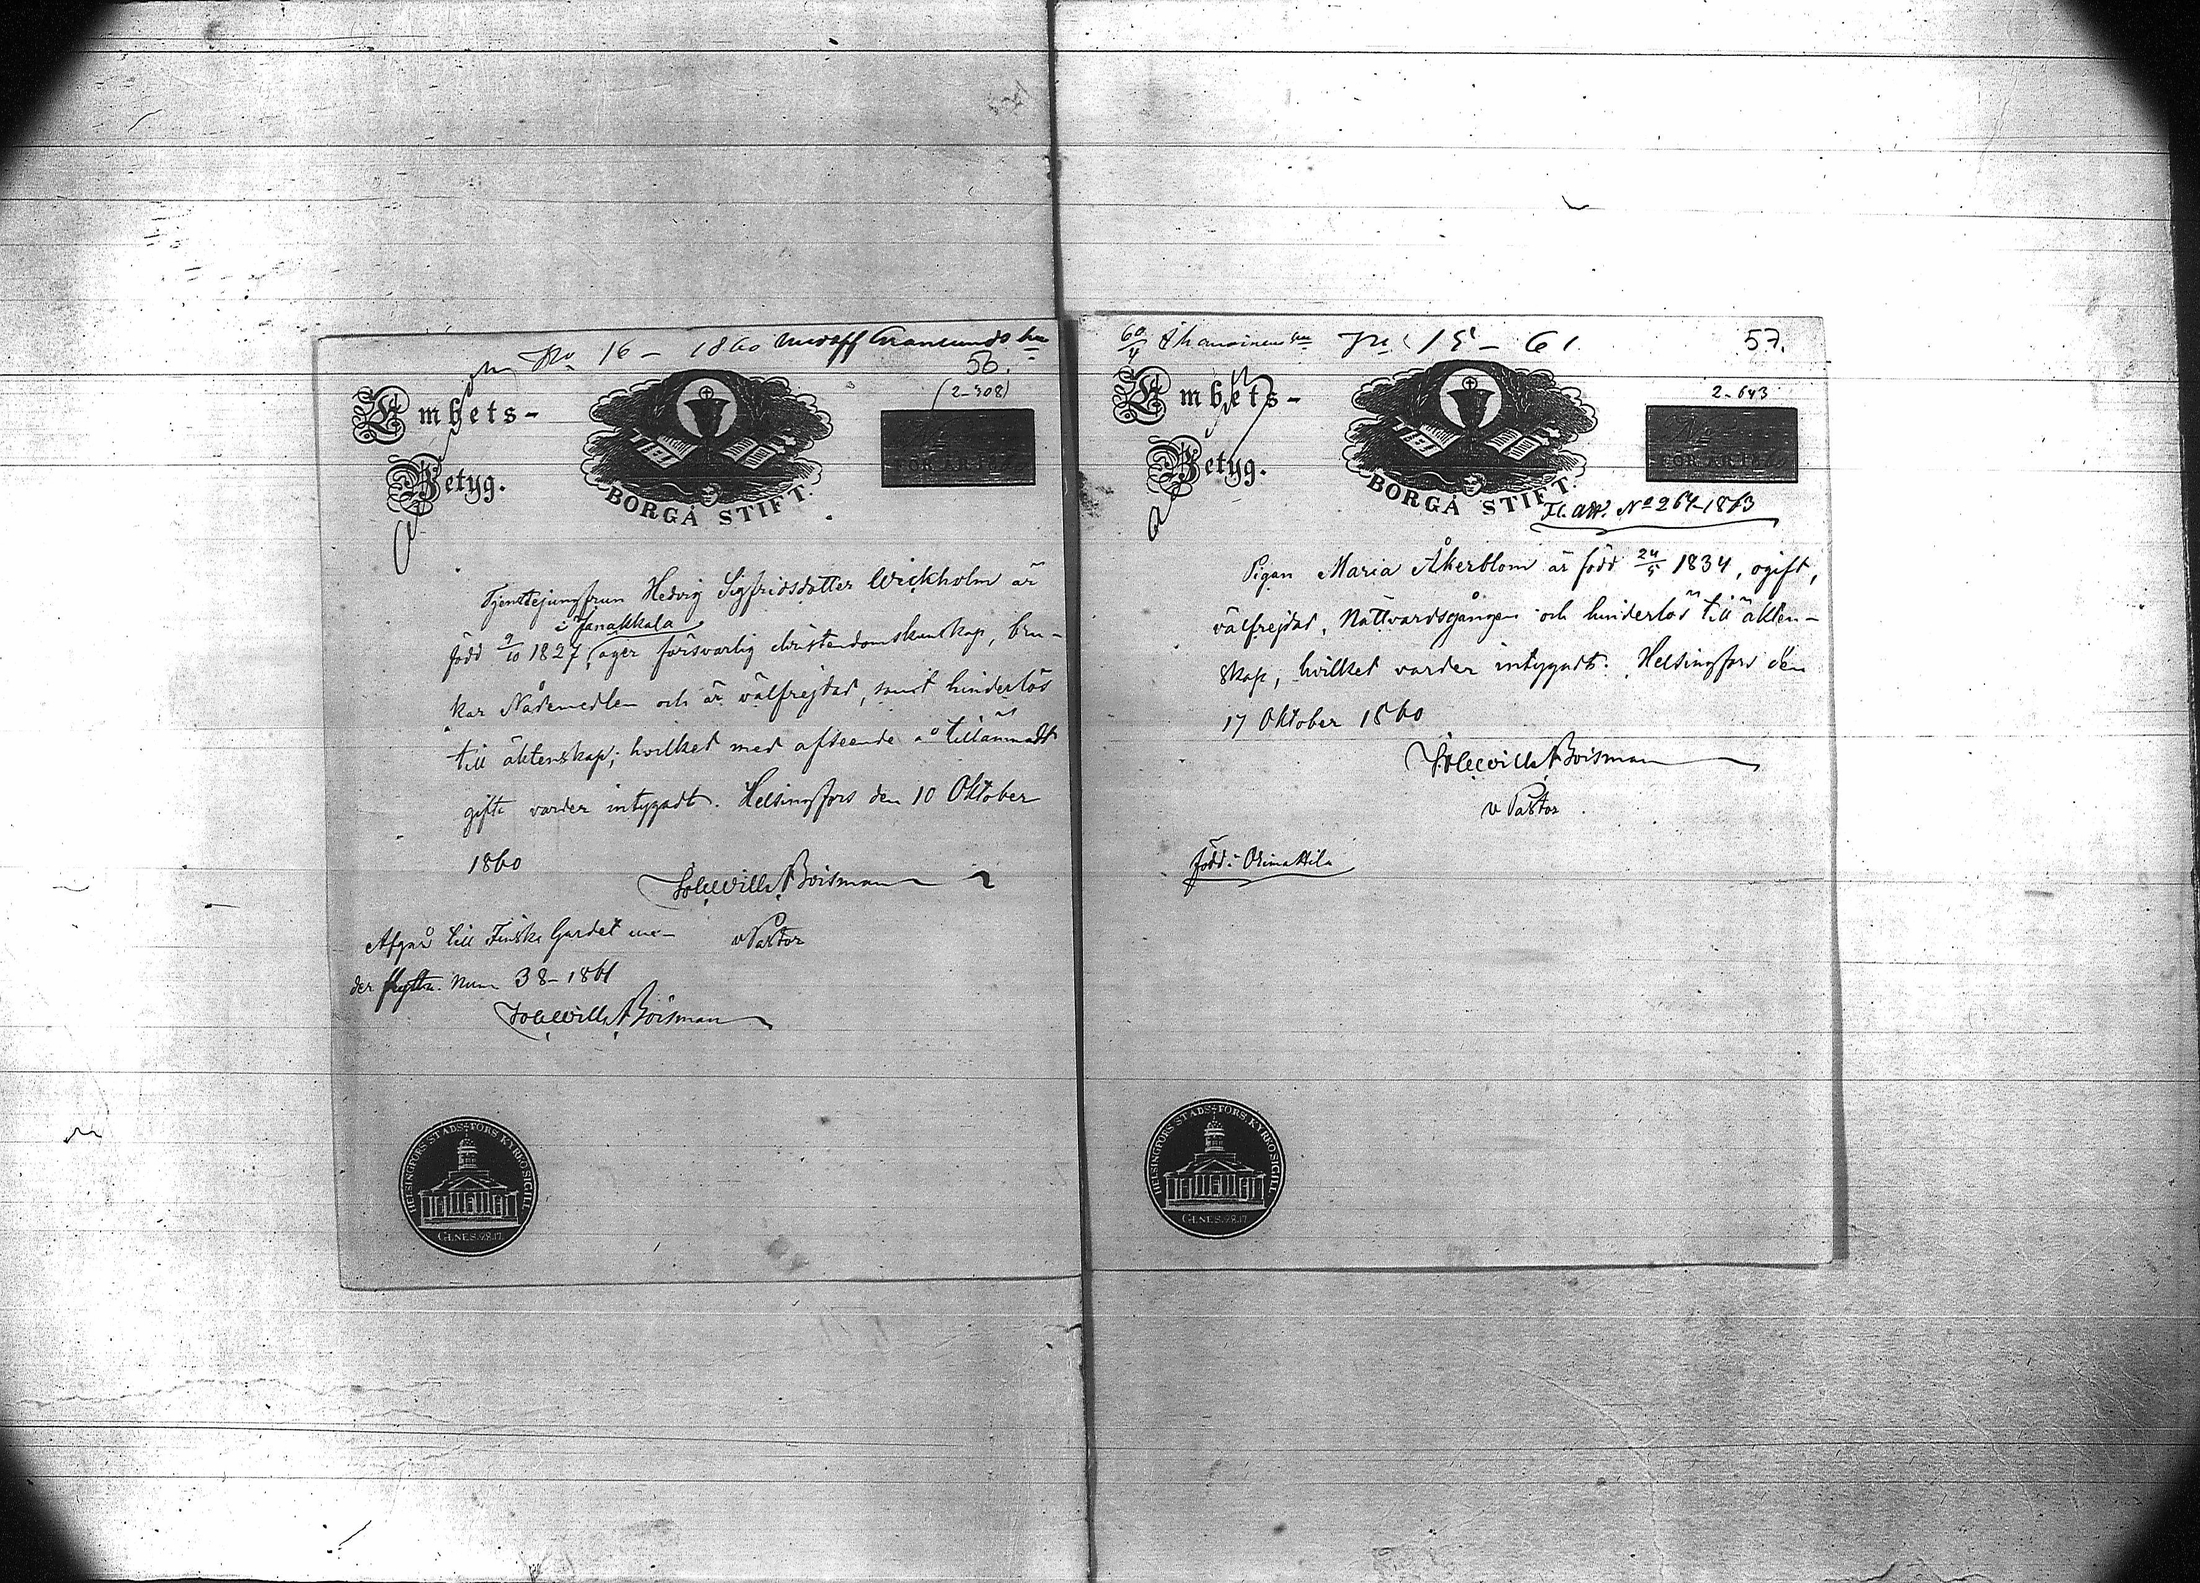 No 16 - 1860 Granlunds hu
56.
(2-908)
Ambets-
Betyg.
BORGÅ STIFT.
FÖR ÅR 18
Tjenstejungfrun Hedvig Sigfridsdotter Wickholm är
i Janakkala
född 9/10 1827, äger försvarlig christendomskunskap, bru-
kar Nådemedlen och är välfrejdad, samt hinderlös
till äktenskap; hvilket med afseende å tillämnadt
gifte varder intygadt. Helsingfors den 10 Oktober
1860
Boisman
v Pastor
Afgår till Finska Gardet un-
der flyttn. Num 38-1861
Boisman
HELSINGFORS STADS-FÖRS. KYRKOSIGILL.
GENES. 28.17.
60/4
No 15 - 61
57.
2-643
Ambets-
Betyg.
BORGÅ STIFT.
FÖR ÅR 18
No 264-1863
Pigan Maria Åkerblom är född 24/5 1834, ogift,
välfrejdad, Nattvardsgången och hinderlös till äkten-
skap, hvilket varder intygadt. Helsingfors den
17 Oktober 1860
Boisman
v Pastor
född i Orimattila
HELSINGFORS STADS-FÖRS. KYRKOSIGILL.
GENES. 28.17.